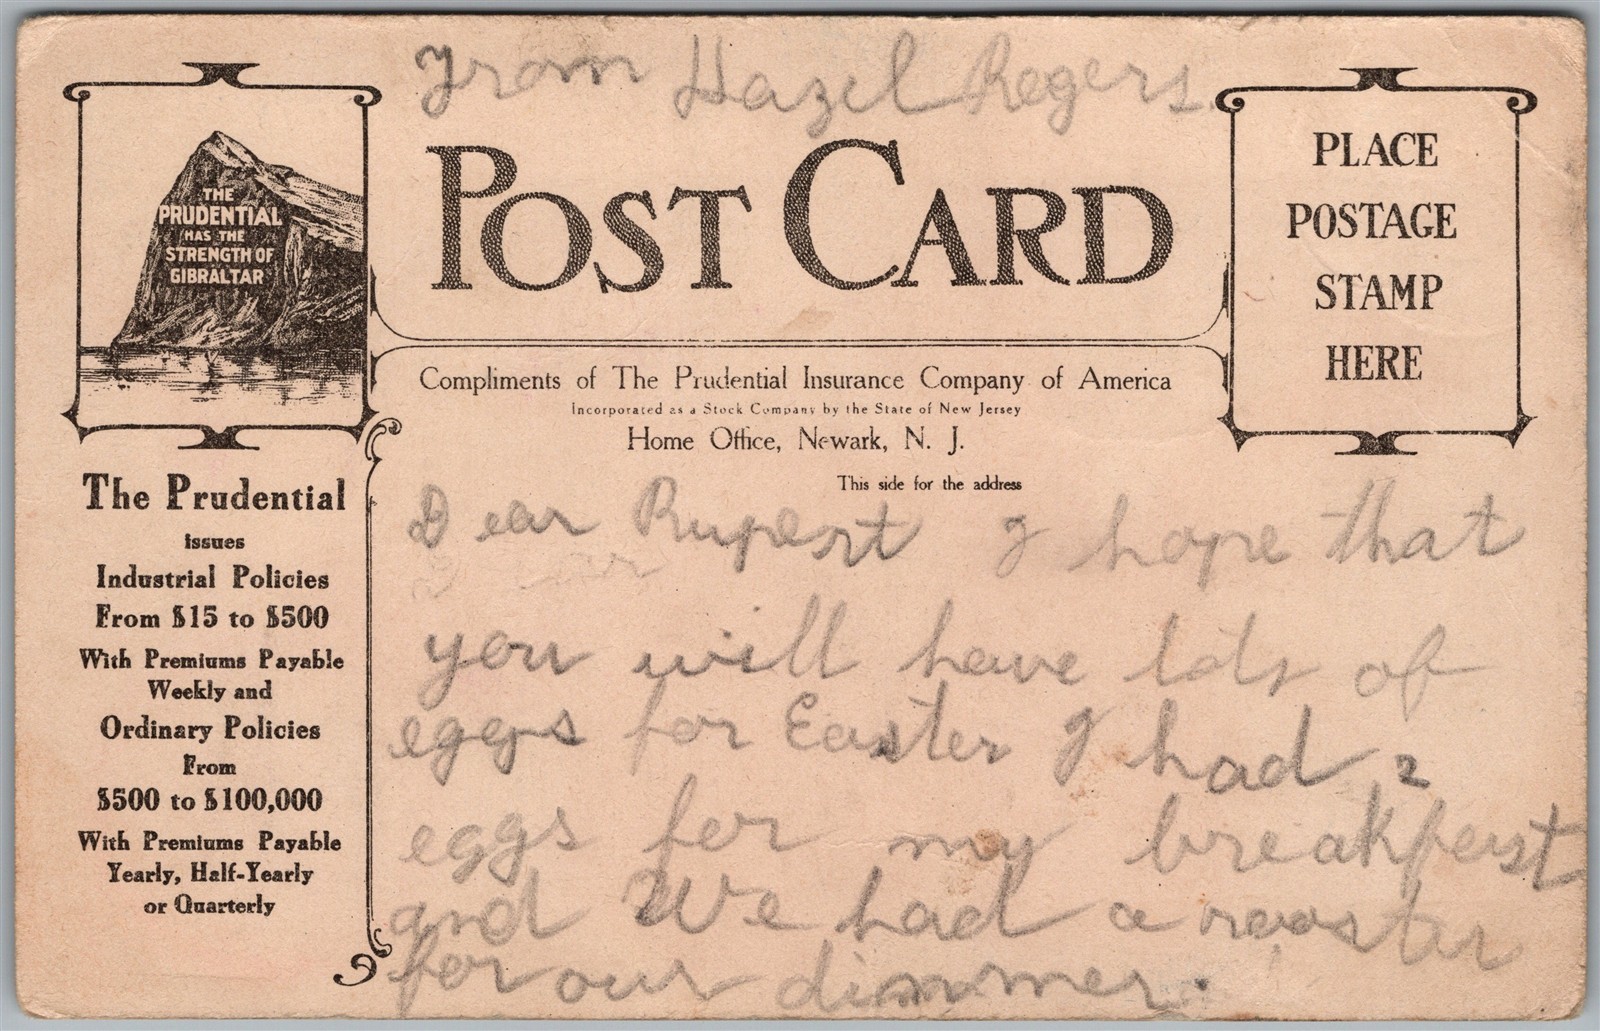 From Hazel Rogers.
THE
PRUDENTIAL
HAS THE
STRENGTH OF
GIBRALTAR
POST CARD
PLACE
POSTAGE
STAMP
HERE
Compliments of The Prudential Insurance Company of America
Incorporated as a Stock Company by the State of New Jersey
Home Office, Newark, N. J.
This side for the address
The Prudential
issues
Industrial Policies
From $15 to $500
With Premiums Payable
Weekly and
Ordinary Policies
From
$500 to $100,000
With Premiums Payable
Yearly, Half-Yearly
or Quarterly
Dear Rupert I hope that
you will have lots of
eggs for Easter I had 2
eggs for my breakferst
and We had a rooster
for our dimmer.